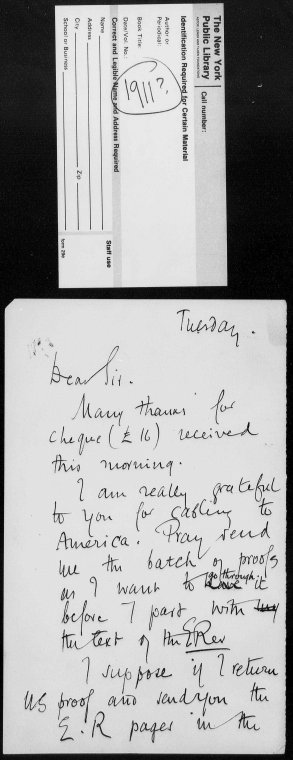 The New York
Public Library
Astor, Lenox and Tilden Foundations
Call number:
Identification Required for Certain Material
Author or
Periodical:
Book Title:
Date/Vol. No.:
1911?
Correct and Legible Name and Address Required
Name
Address
City Zip
School or Business
Staff use
form 29a
Tuesday.
Dear Sir.
Many thanks for
cheque (£16) received
this morning.
I am really grateful
to you for cabling to
America. Pray send
me the batch of proofs
as I want to go through it
before I part with
the text of the E.Rev
I suppose if I return
US proof and send you the
E.R pages in the